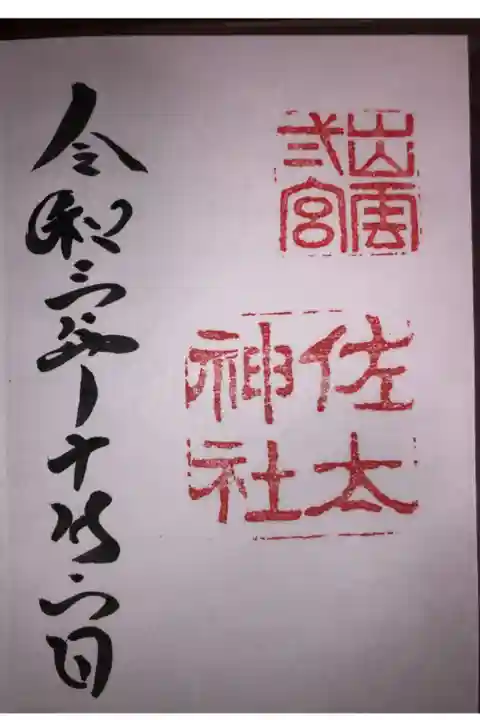 出雲
弍宮
佐太
神社
令和三年十月六日